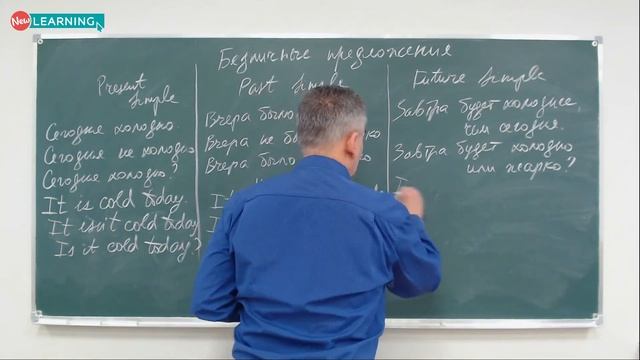 New LEARNING
Безличные предложения
Present
Simple
Сегодня холодно.
Сегодня не холодно
Сегодня холодно?
It is cold today.
It isn't cold today
Is it cold today?
Past Simple
Вчера было
Вчера не
Вчера было
Future Simple
Завтра будет холоднее,
чем сегодня.
Завтра будет холодно
или жарко?